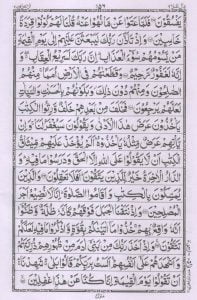 ١٥٦
يَفْسُقُوْنَ فَلَمَّا عَتَوْا عَنْ مَّا نُهُوْا عَنْهُ قُلْنَا لَهُمْ كُوْنُوْا قِرَدَةً
خَاسِئِيْنَ وَاِذْ تَاَذَّنَ رَبُّكَ لَيَبْعَثَنَّ عَلَيْهِمْ اِلٰى يَوْمِ الْقِيٰمَةِ
مَنْ يَّسُوْمُهُمْ سُوْٓءَ الْعَذَابِ اِنَّ رَبَّكَ لَسَرِيْعُ الْعِقَابِ وَ
اِنَّهٗ لَغَفُوْرٌ رَّحِيْمٌ وَقَطَّعْنٰهُمْ فِي الْاَرْضِ اُمَمًا مِنْهُمُ
الصّٰلِحُوْنَ وَمِنْهُمْ دُوْنَ ذٰلِكَ وَبَلَوْنٰهُمْ بِالْحَسَنٰتِ وَالسَّيِّاٰتِ
لَعَلَّهُمْ يَرْجِعُوْنَ فَخَلَفَ مِنْۢ بَعْدِهِمْ خَلْفٌ وَّرِثُوا الْكِتٰبَ
يَاْخُذُوْنَ عَرَضَ هٰذَا الْاَدْنٰى وَيَقُوْلُوْنَ سَيُغْفَرُ لَنَا وَاِنْ
يَّاْتِهِمْ عَرَضٌ مِّثْلُهٗ يَاْخُذُوْهُ اَلَمْ يُؤْخَذْ عَلَيْهِمْ مِّيْثَاقُ
الْكِتٰبِ اَنْ لَّا يَقُوْلُوْا عَلَى اللّٰهِ اِلَّا الْحَقَّ وَدَرَسُوْا مَا فِيْهِ وَ
الدَّارُ الْاٰخِرَةُ خَيْرٌ لِّلَّذِيْنَ يَتَّقُوْنَ اَفَلَا تَعْقِلُوْنَ وَالَّذِيْنَ
يُمَسِّكُوْنَ بِالْكِتٰبِ وَاَقَامُوا الصَّلٰوةَ اِنَّا لَا نُضِيْعُ اَجْرَ
الْمُصْلِحِيْنَ وَاِذْ نَتَقْنَا الْجَبَلَ فَوْقَهُمْ كَاَنَّهٗ ظُلَّةٌ وَّظَنُّوْٓا
اَنَّهٗ وَاقِعٌۢ بِهِمْ خُذُوْا مَآ اٰتَيْنٰكُمْ بِقُوَّةٍ وَّاذْكُرُوْا مَا فِيْهِ
لَعَلَّكُمْ تَتَّقُوْنَ وَاِذْ اَخَذَ رَبُّكَ مِنْۢ بَنِيْٓ اٰدَمَ مِنْ ظُهُوْرِهِمْ ذُرِّيَّتَهُمْ
وَاَشْهَدَهُمْ عَلٰٓى اَنْفُسِهِمْ اَلَسْتُ بِرَبِّكُمْ قَالُوْا بَلٰى شَهِدْنَا
اَنْ تَقُوْلُوْا يَوْمَ الْقِيٰمَةِ اِنَّا كُنَّا عَنْ هٰذَا غٰفِلِيْنَ